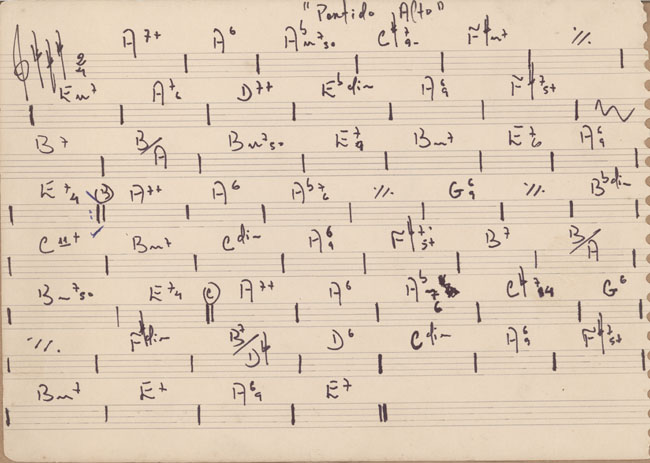 "Partido Alto"
2/4 A7+ A6 Abm7 5o C#7 9- F#m7 ·//.
Em7 A7 6 D7+ Ebdim A6 9 F#7 5+
B7 B/A Bm7 5o E7 9 Bm7 E7 6 A6 9
E7 4 B A7+ A6 Ab7 6 ·//. G6 9 ·//. Bbdim
Bm7 Cdim A6 9 F#7 5+ B7 B/A
Bm7 5o E7 4 C A7+ A6 Ab7 6 G6
·//. F#dim B7/D# D6 Cdim A6 9 F#7 5+
Bm7 E7 A6 9 E7